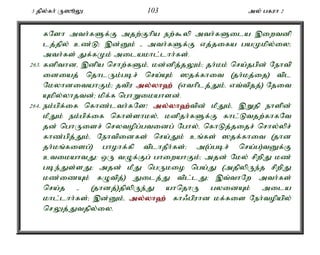 3 தில்கர் ருஸூலு 103 அல் பகரா 2
களோ அவர்களுக்கு அதற்குரிய நற்கூலி அவர்களுடைய இறைவனி
டத்தில் உண்டு; இன்னும் , அவர்களுக்கு எத்தகைய பயமுமில்லை;
அவர்கள் துக்கமும் அடையமாட்டார்கள்.
263. கனிவான, இனிய சொற்களும், மன்னித்தலும்; தர்மம் செய்தபின் நோவி
னையைத் தொடரும்படிச் செய்யும் ஸதக்காவை (தர்மத்தை) விட
மேலானவையாகும்; தவிர அல்லாஹ் (எவரிடத்தும், எவ்வித்த தேவை
யுமில்லாதவன்; மிக்க பொறுமையாளன்.
264. நம்பிக்கை கொண்டவர்களே! அல்லாஹ்வின் மீதும், இறுதி நாளின்
மீதும் நம்பிக்கை கொள்ளாமல், மனிதர்களுக்கு காட்டுவதற்காகவே
தன் பொருளைச் செலவழிப்பவனைப் போல், கொடுத்ததைச் சொல்லிச்
காண்பித்தும், நோவினைகள் செய்தும் உங்கள் ஸதக்காவை (தான
தர்மங்களைப்) பாழாக்கி விடாதீர்கள்; அ(ப்படிச் செய்ப)வனுக்கு
உவமையாவது: ஒரு வழுக்குப் பாறையாகும்; அதன் மேல் சிறிது மண்
படிந்துள்ளது; அதன் மீது பெருமழை பெய்து (அதிலிருந்த சிறிது
மண்ணையும் கழுவித்) துடைத்து விட்டது; இவ்வாறே அவர்கள்
செய்த - (தானத்)திலிருந்து யாதொரு பலனையும் அடைய
மாட்டார்கள்; இன்னும், அல்லாஹ் காஃபிரான மக்களை நேர்வழியில்
செலுத்துவதில்லை.